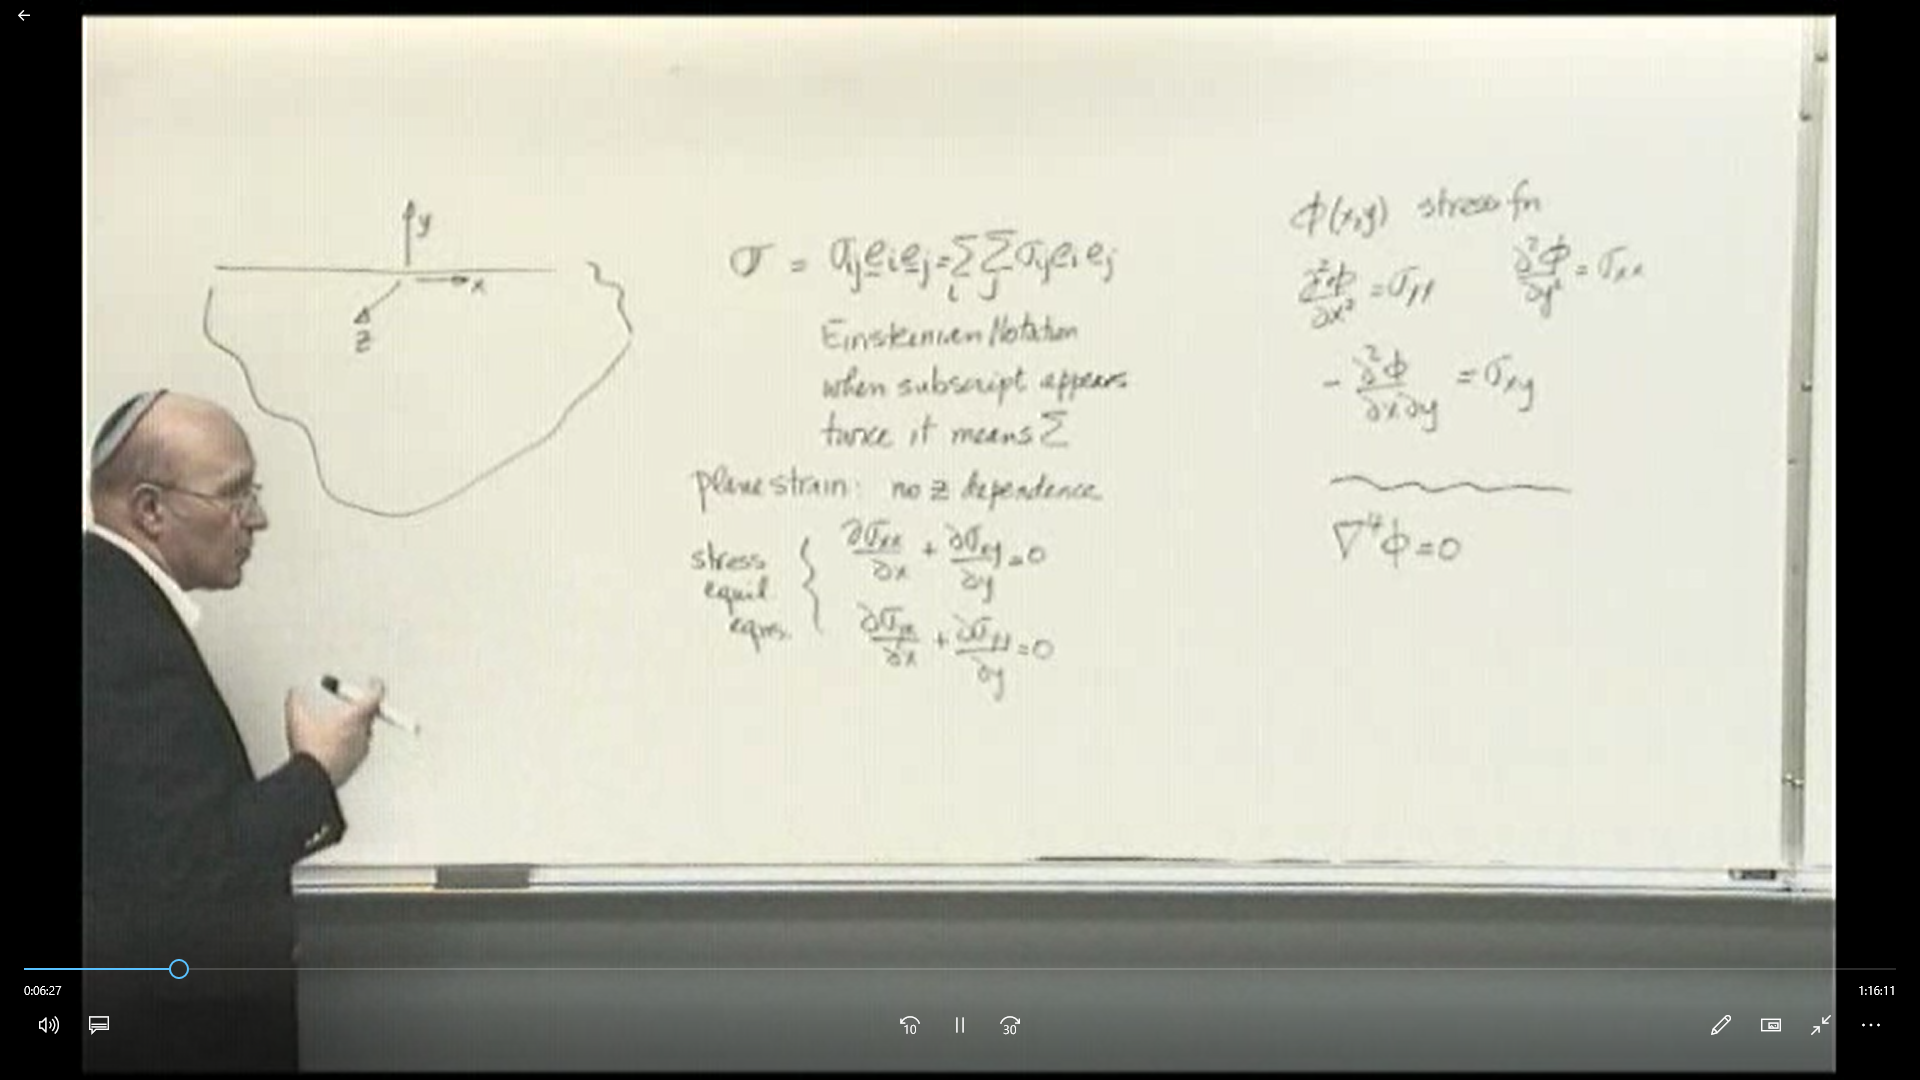 y
x
z
σ = σij ei ej = Σi Σj σij ei ej
Einsteinien Notation
when subscript appears
twice it means Σ
plane strain: no z dependence
stress equil eqns. { ∂σxx/∂x + ∂σxy/∂y = 0
∂σyx/∂x + ∂σyy/∂y = 0
φ(x,y) stress fn
∂²φ/∂x² = σyy ∂²φ/∂y² = σxx
- ∂²φ/∂x∂y = σxy
∇⁴φ = 0
0:06:27
1:16:11
10
30